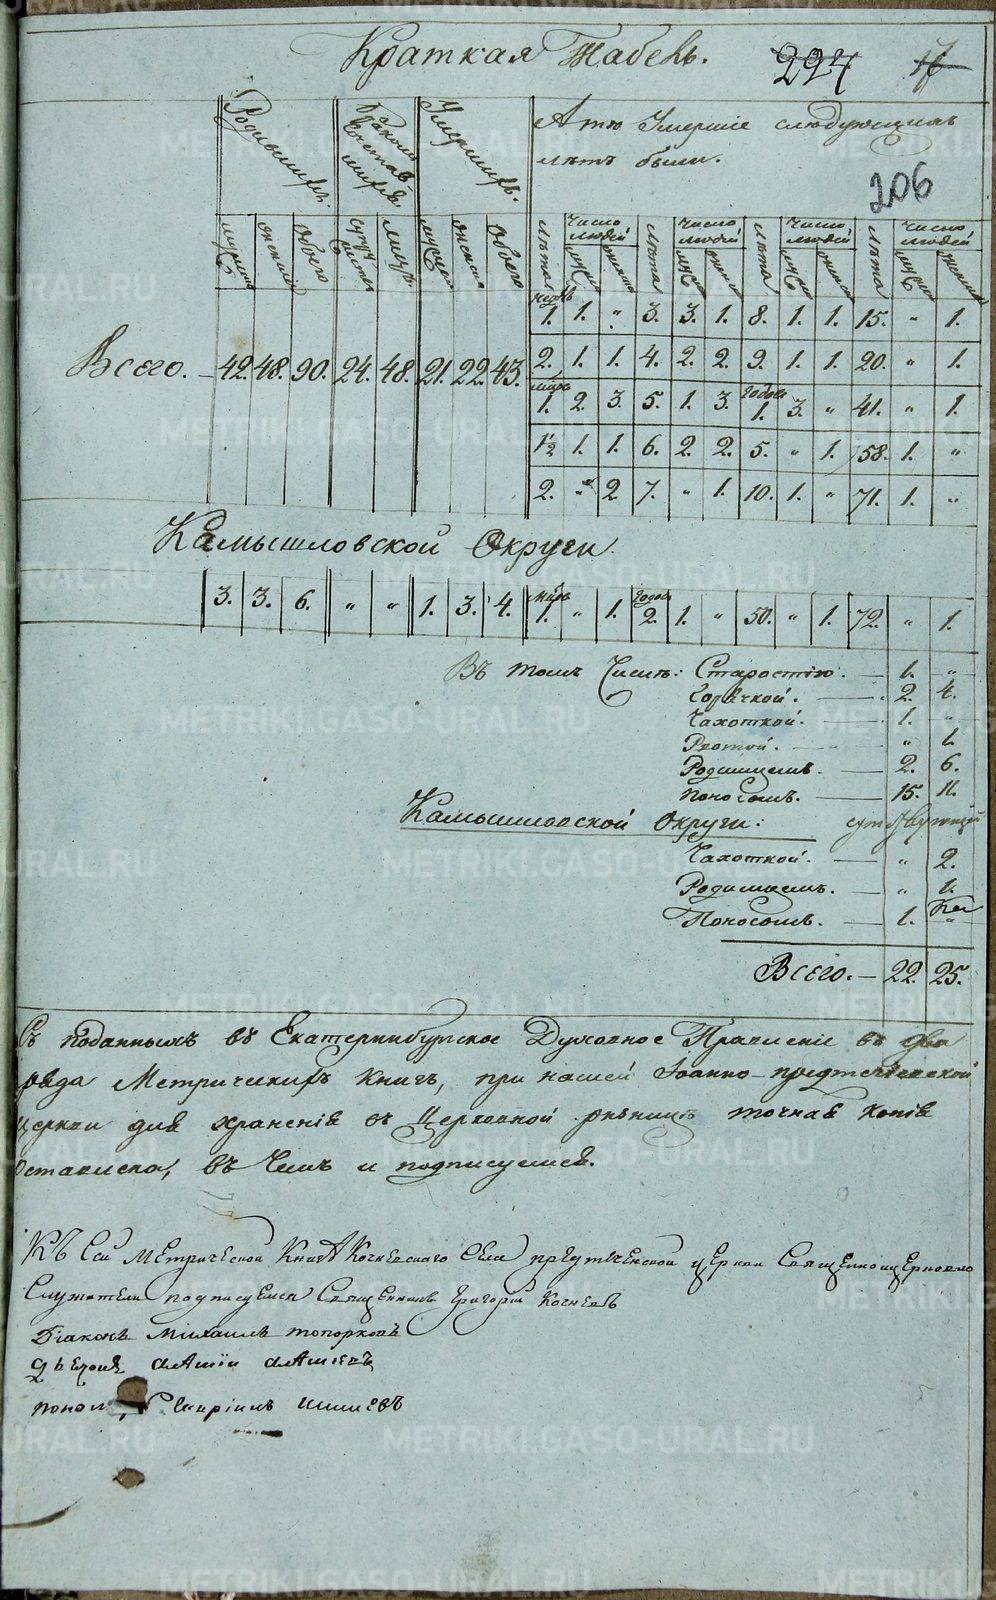 Краткая Табель. 224 17
Родившихъ. Бракомъ Сочетавшихся Умершихъ. А тѣ Умершіе слѣдующихъ
лѣтъ были.
206
мужска женска Обоего супружествъ лицъ мужска женска Обоего лѣта Число людей мужска женска лѣта Число людей мужска женска лѣта Число людей мужска женска лѣта Число людей мужска женска
1. 1. " 3. 3. 1. 8. 1. 1. 15. " 1.
Всего. 42. 48. 90. 24. 48. 21. 22. 43. 2. 1. 1. 4. 2. 2. 9. 1. 1. 20. " 1.
1. 2. 3. 5. 1. 3. Годовъ 1. 3. " 41. " 1.
1½ 1. 1. 6. 2. 2. 5. " 1. 58. 1. "
2. " 2 7. " 1. 10. 1. " 71. 1. "
Камышловской Округи.
3. 3. 6. " " 1. 3. 4. 1. " 1. Годов 2. 1. " 50. " 1. 72. " 1.
Въ томъ Числѣ: Старостію. 1. "
Горячкой. 2. 4.
Чахоткой. 1. "
Рвотой. " 1.
Родимцемъ. 2. 6.
Поносомъ. 15. 11.
Камышловской Округи:
Чахоткой. " 2.
Родимцемъ. " 1.
Поносомъ. 1. "
Всего. 22. 25.
Съ Поданныхъ въ Екатеринбургское Духовное Правленіе въ два
ряда Метрическихъ книгъ, при нашей Іоанно-предтечевской
церкви для храненія въ Церковной ризницѣ точная копія
Оставлена, въ Чемъ и подписуемся.
Къ Сей Метрической Книгѣ Кочневскаго Села предтеченской церкви Священноцерковно
Служители подписуемся Священникъ Григорій Кочневъ
Діаконъ Михаилъ топорковъ
дьячекъ
поном